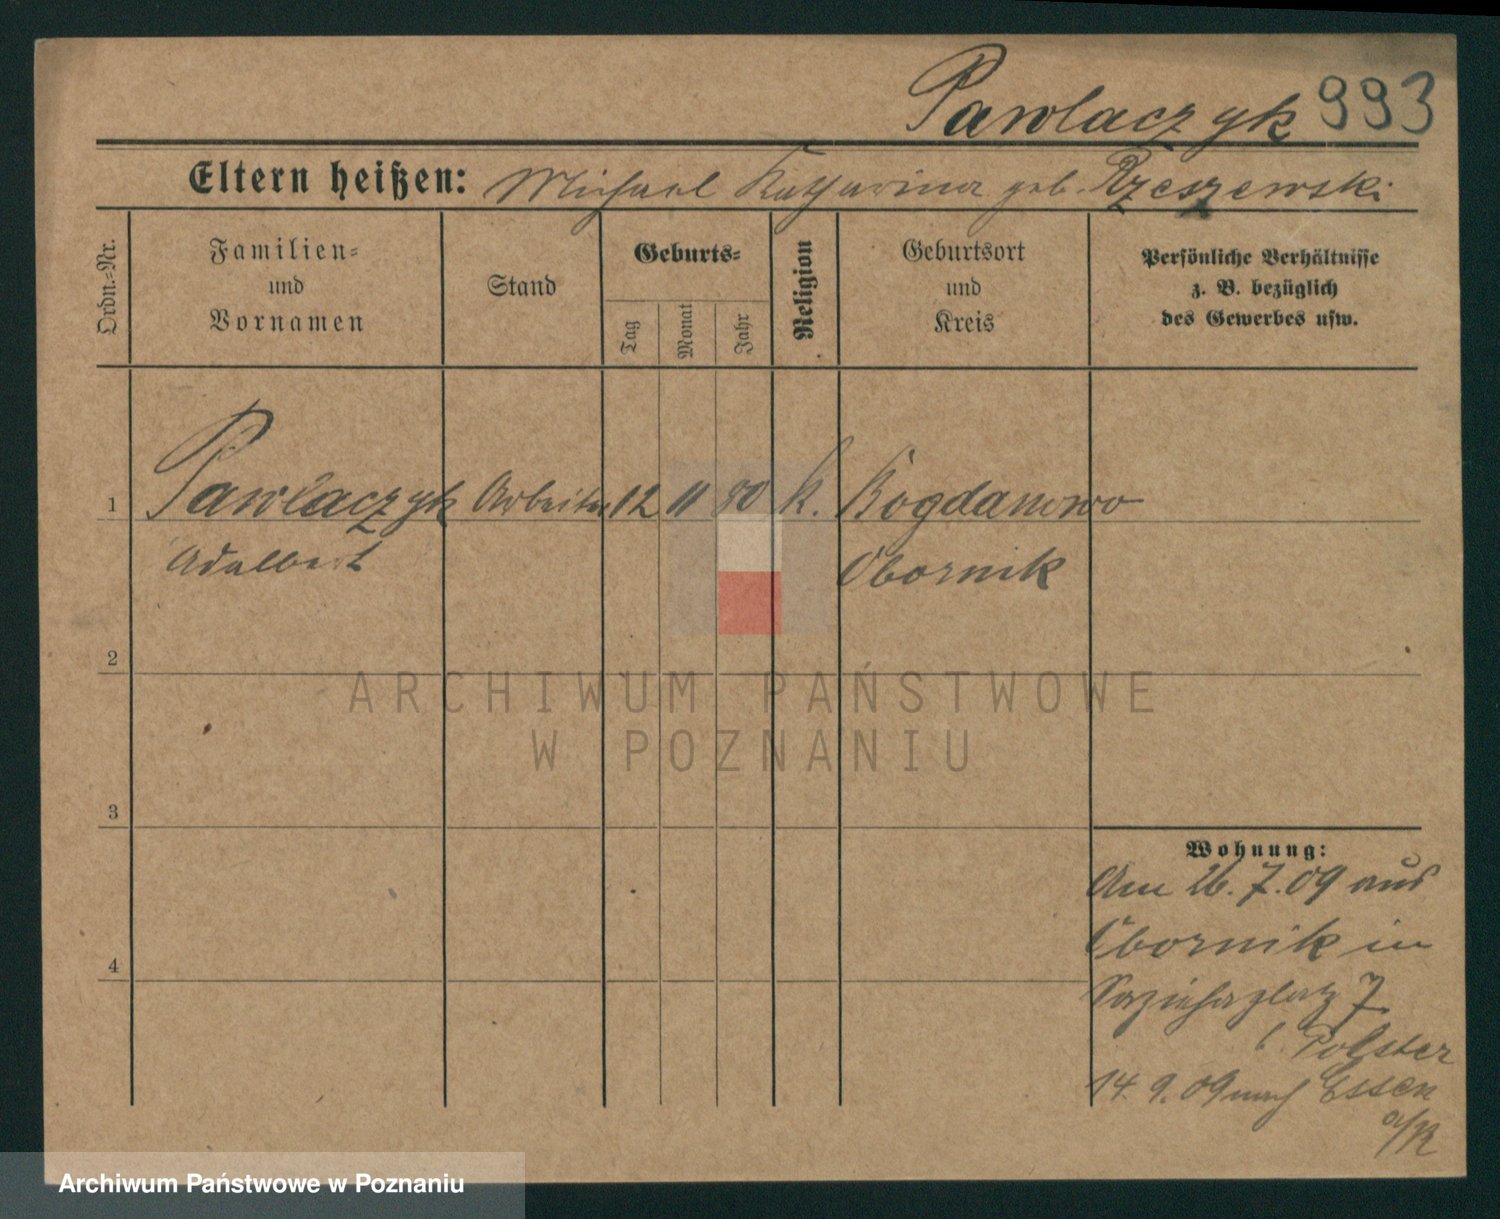 Pawlaczyk 993
Eltern heißen: Michael Katharina geb. Rzeszewski
Ordn.-Nr.
Familien-
und
Vornamen
Stand
Geburts-
Tag
Monat
Jahr
Religion
Geburtsort
und
Kreis
Persönliche Verhältnisse
z. B. bezüglich
des Gewerbes usw.
1 Pawlaczyk Arbeiter 12 11 80 k. Bogdanowo
Adalbert Obornik
2
ARCHIWUM PAŃSTWOWE
W POZNANIU
3
Wohnung:
Am 26.7.09 aus
Obornik in
Sapiehaplatz 7
b. Polster
4
14.9.09 nach Essen
a/R
Archiwum Państwowe w Poznaniu